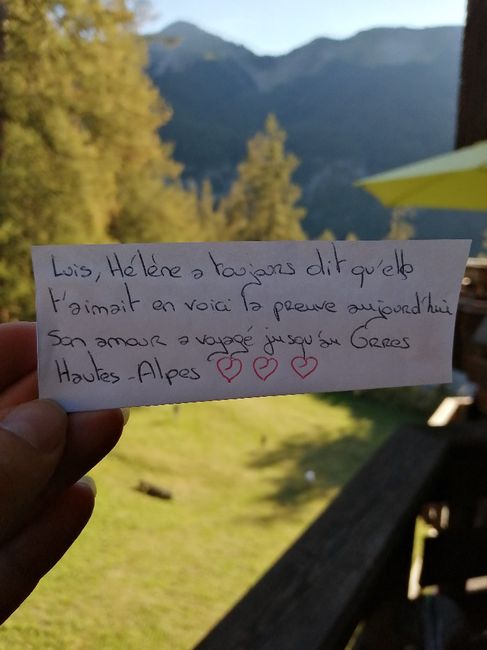 Luis, Hélène a toujours dit qu'elle
t'aimait en voici la preuve aujourd'hui
Son amour a voyagé jusqu'au Orres
Hautes-Alpes